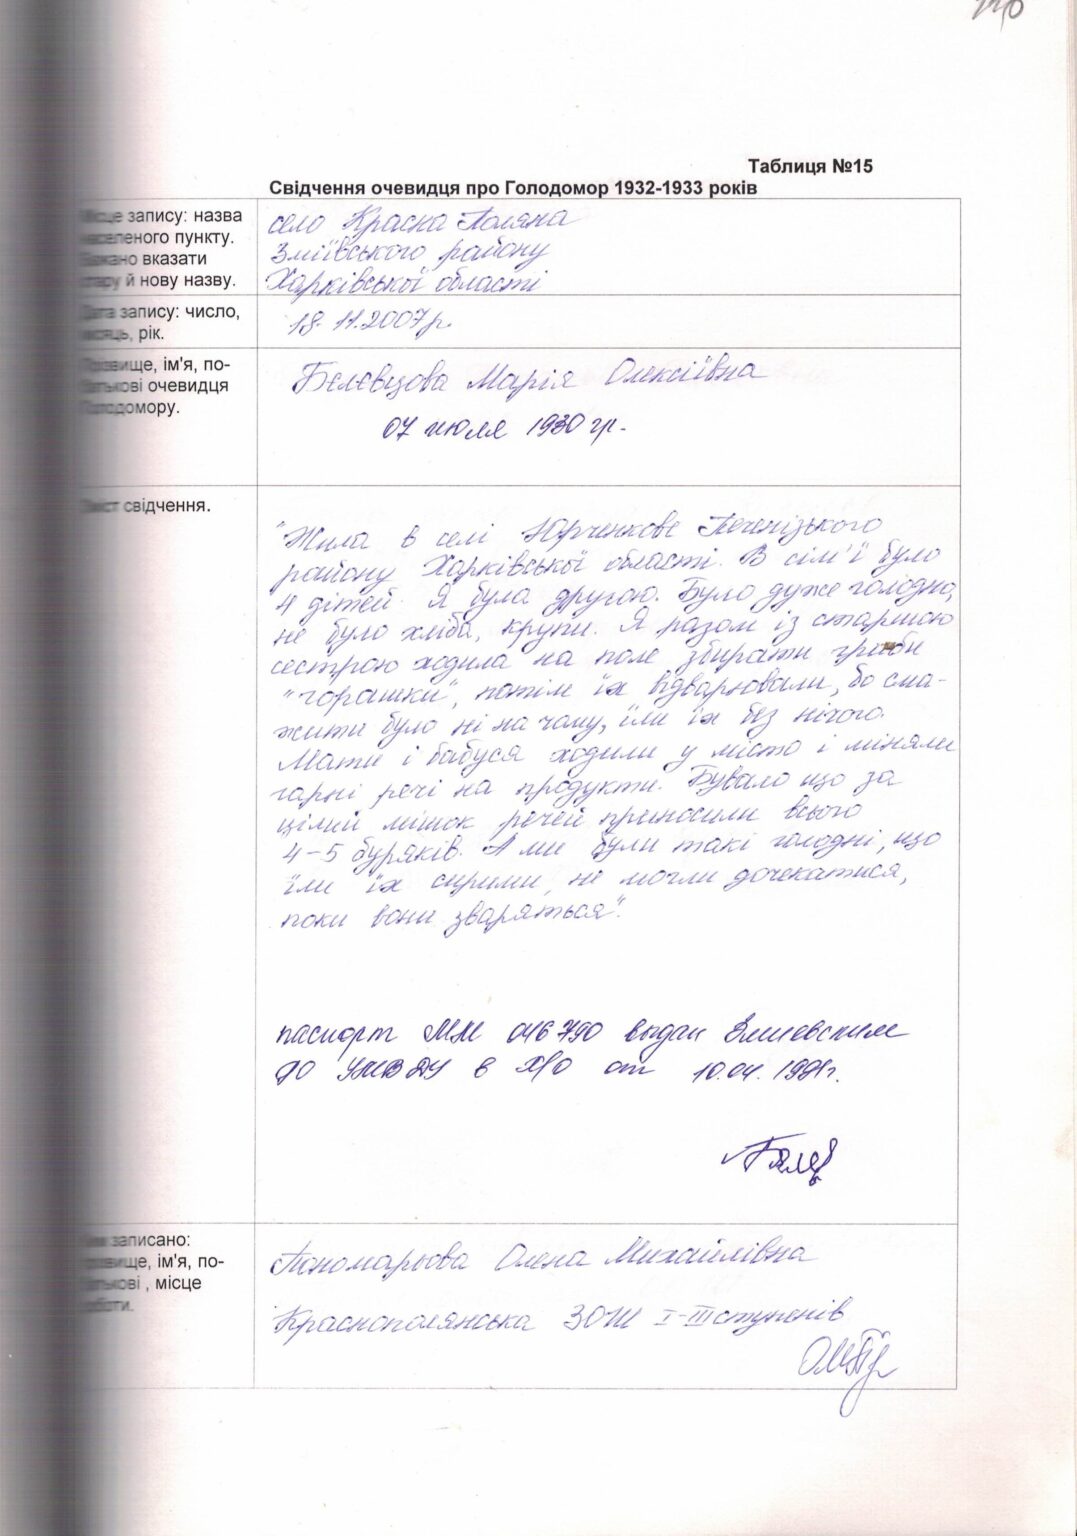 Таблиця №15
Свідчення очевидця про Голодомор 1932-1933 років
Місце запису: назва
населеного пункту.
Бажано вказати
стару й нову назву.
село Красна Поляна
Зміївського району
Харківської області
Дата запису: число,
місяць, рік.
18.11.2007р.
Прізвище, ім'я, по-
батькові очевидця
Голодомору.
Бєлєвцова Марія Олексіївна
07 июля 1930 гр.
Зміст свідчення.
"Жила в селі Юрченкове Печенізького
району Харківської області. В сім'ї було
4 дітей. Я була другою. Було дуже голодно,
не було хліба, крупи. Я разом із старшою
сестрою ходила на поле збирати гриби
"горашки", потім їх відварювали, бо сма-
жити було ні на чому, їли їх без нічого.
Мати і бабуся ходили у місто і міняли
гарні речі на продукти. Бувало що за
цілий мішок речей приносили всього
4-5 буряків. А ми були такі голодні, що
їли їх сирими, не могли дочекатися,
поки вони зваряться".
паспорт ММ 046790 выдан Змиевским
РО УМВДУ в Х/О от 10.04.
Ким записано:
прізвище, ім'я, по-
батькові , місце
роботи.
Пономарьова Олена Михайлівна
Краснополянська ЗОШ І-ІІІ ступенів